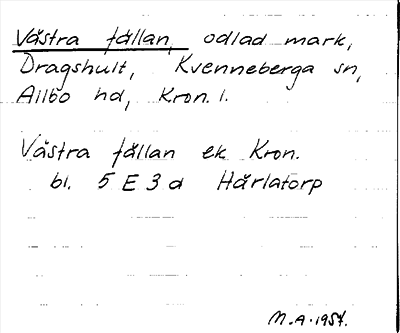 Västra fällan, odlad mark,
Dragshult, Kvenneberga sn,
Allbo hd, Kron. l.
Västra fällan ek Kron.
bl. 5 E 3 d Härlatorp
M.A. 1957.